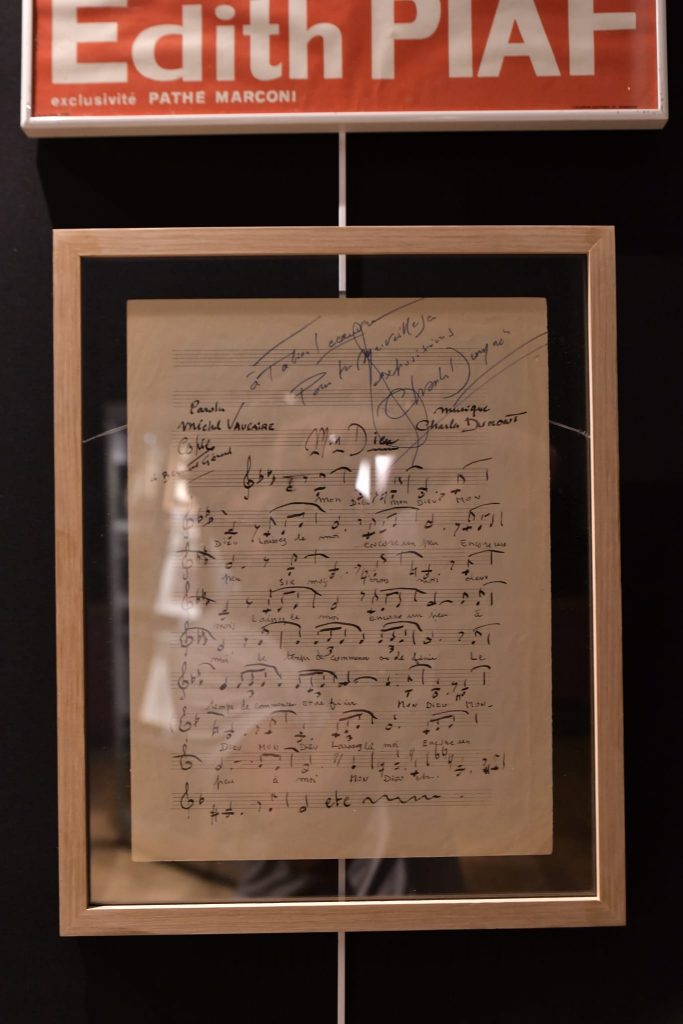 Edith PIAF
exclusivité PATHE MARCONI
à
Pour ta merveilleuse
expositions
Charles Dumont
Paroles
Michel VAUCAIRE
musique
Charles DUMONT
Copie
Mon Dieu
MON DIEU MON DIEU MON
DIEU Laissez le moi encore un peu Encore un
peu six mois trois mois deux
mois Laissez le moi Encore un peu à
moi le temps de commencer ou de finir Le
temps de commencer et de finir MON DIEU MON
DIEU MON DIEU Laissez le moi Encore un
peu à moi MON DIEU etc.
etc